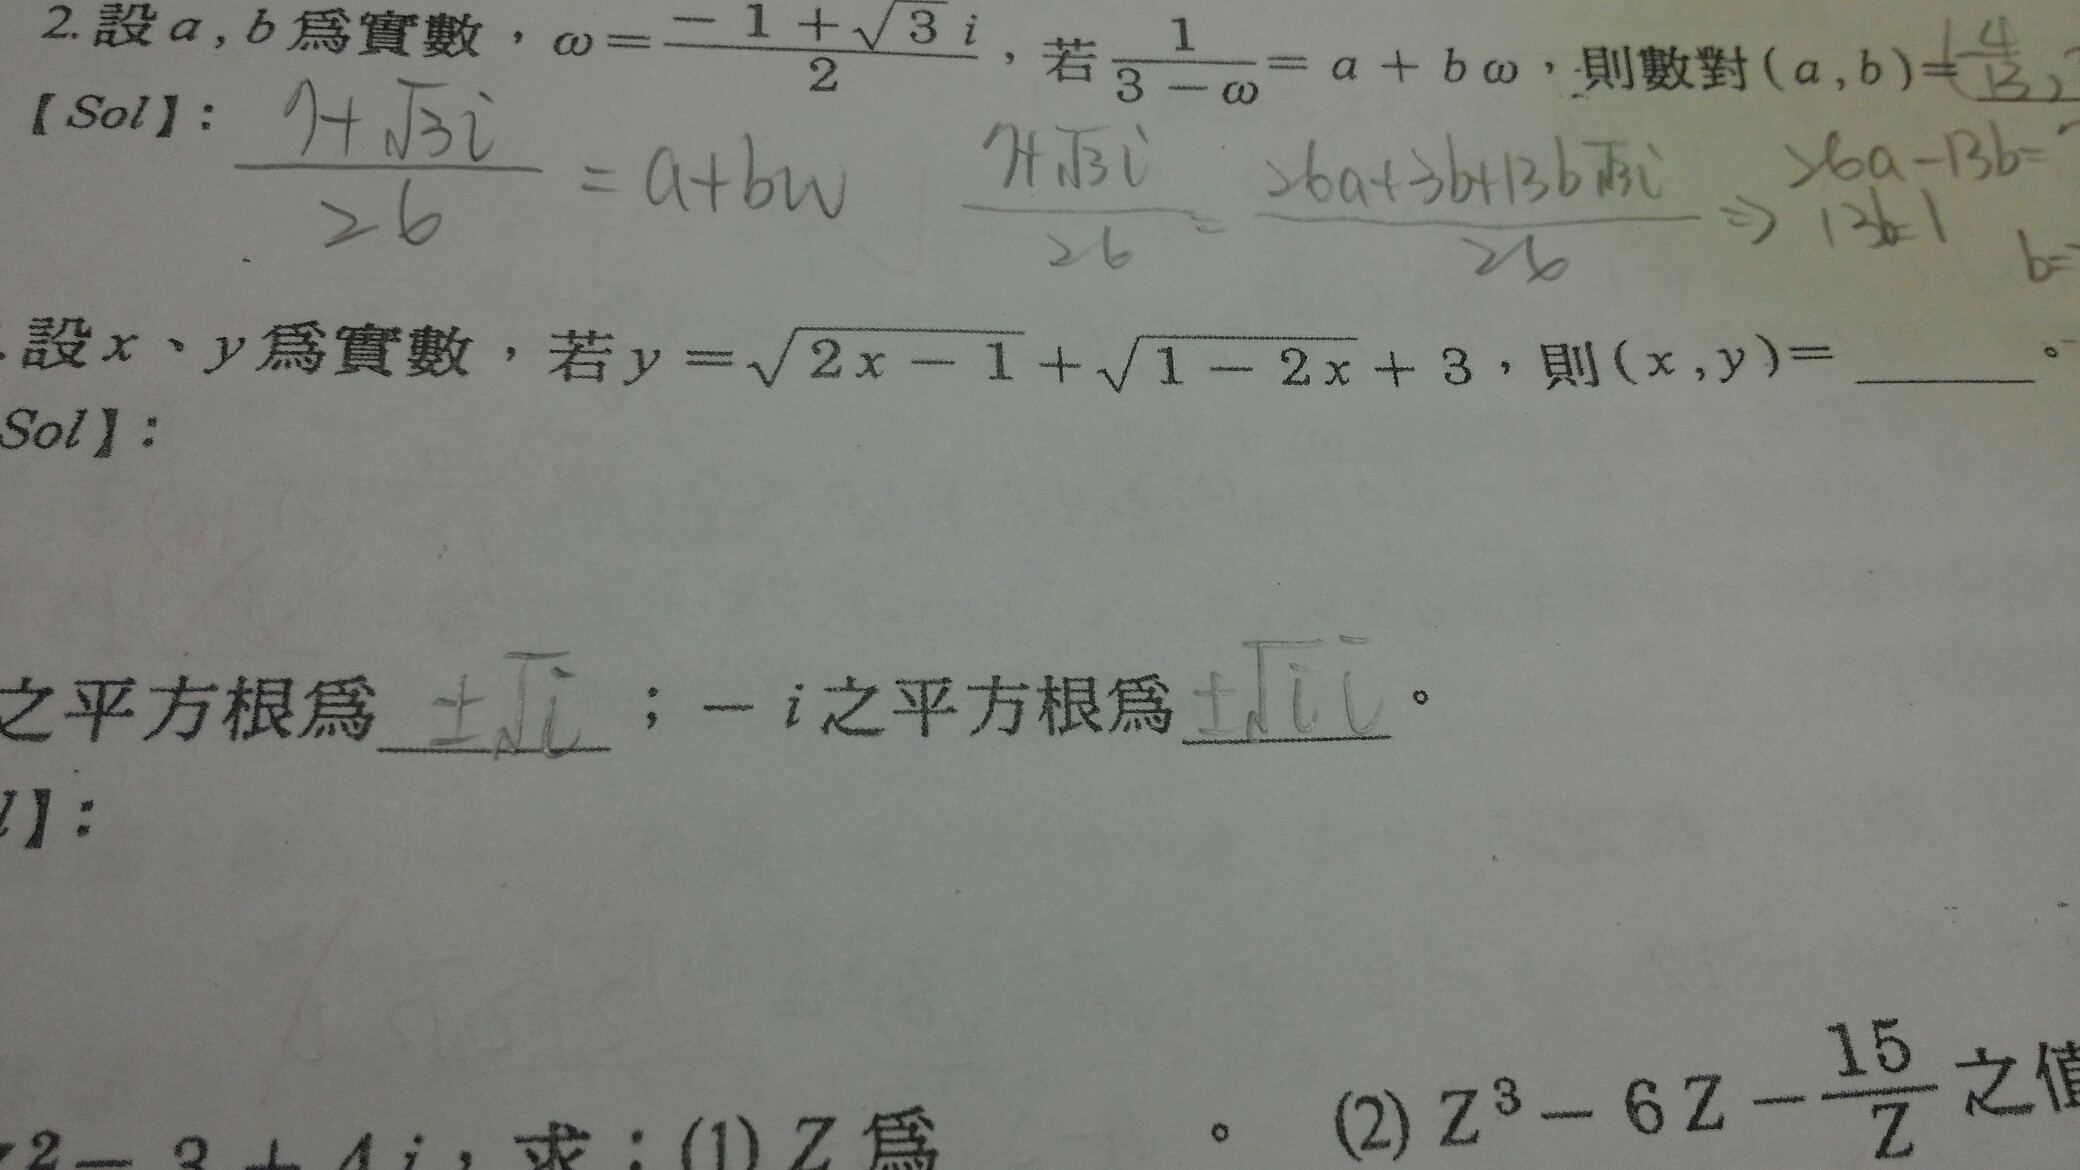 2. 設 a , b 爲實數，ω = \frac{-1+\sqrt{3}i}{2}，若 \frac{1}{3-ω} = a + b ω，則數對 ( a , b ) = ( \frac{4}{13} ,
【Sol】: \frac{7+\sqrt{3}i}{26} = a+bω \frac{7+\sqrt{3}i}{26} = \frac{26a+3b+13b\sqrt{3}i}{26} ⇒ 26a-13b=7
13b=1
b=
設 x、y 爲實數，若 y = \sqrt{2x-1} + \sqrt{1-2x} + 3，則 ( x , y ) = ______。
Sol】:
之平方根爲 ±\sqrt{i} ；- i 之平方根爲 ±\sqrt{i} i 。
l】:
2 = 3 + 4 i，求：(1) Z 爲 。 (2) Z^3 - 6 Z - \frac{15}{Z} 之值